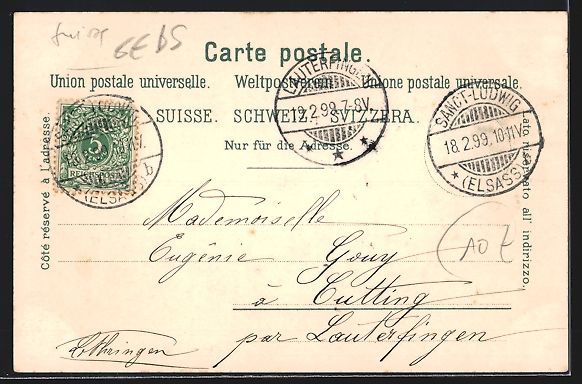 Carte postale.
Union postale universelle. Weltpostverein. Unione postale universale.
SUISSE. SCHWEIZ. SVIZZERA.
Nur für die Adresse.
Côté réservé à l'adresse.
Lato riservato all' indirizzo.
LAUTERFINGEN
18.2.99. 7-8V.
SANCT-LUDWIG
18.2.99. 10-11V.
* (ELSASS)
5
(ELSASS) b
Mademoiselle
Eugénie Gouy
à Cutting
par Lauterfingen
Lothringen
10 t